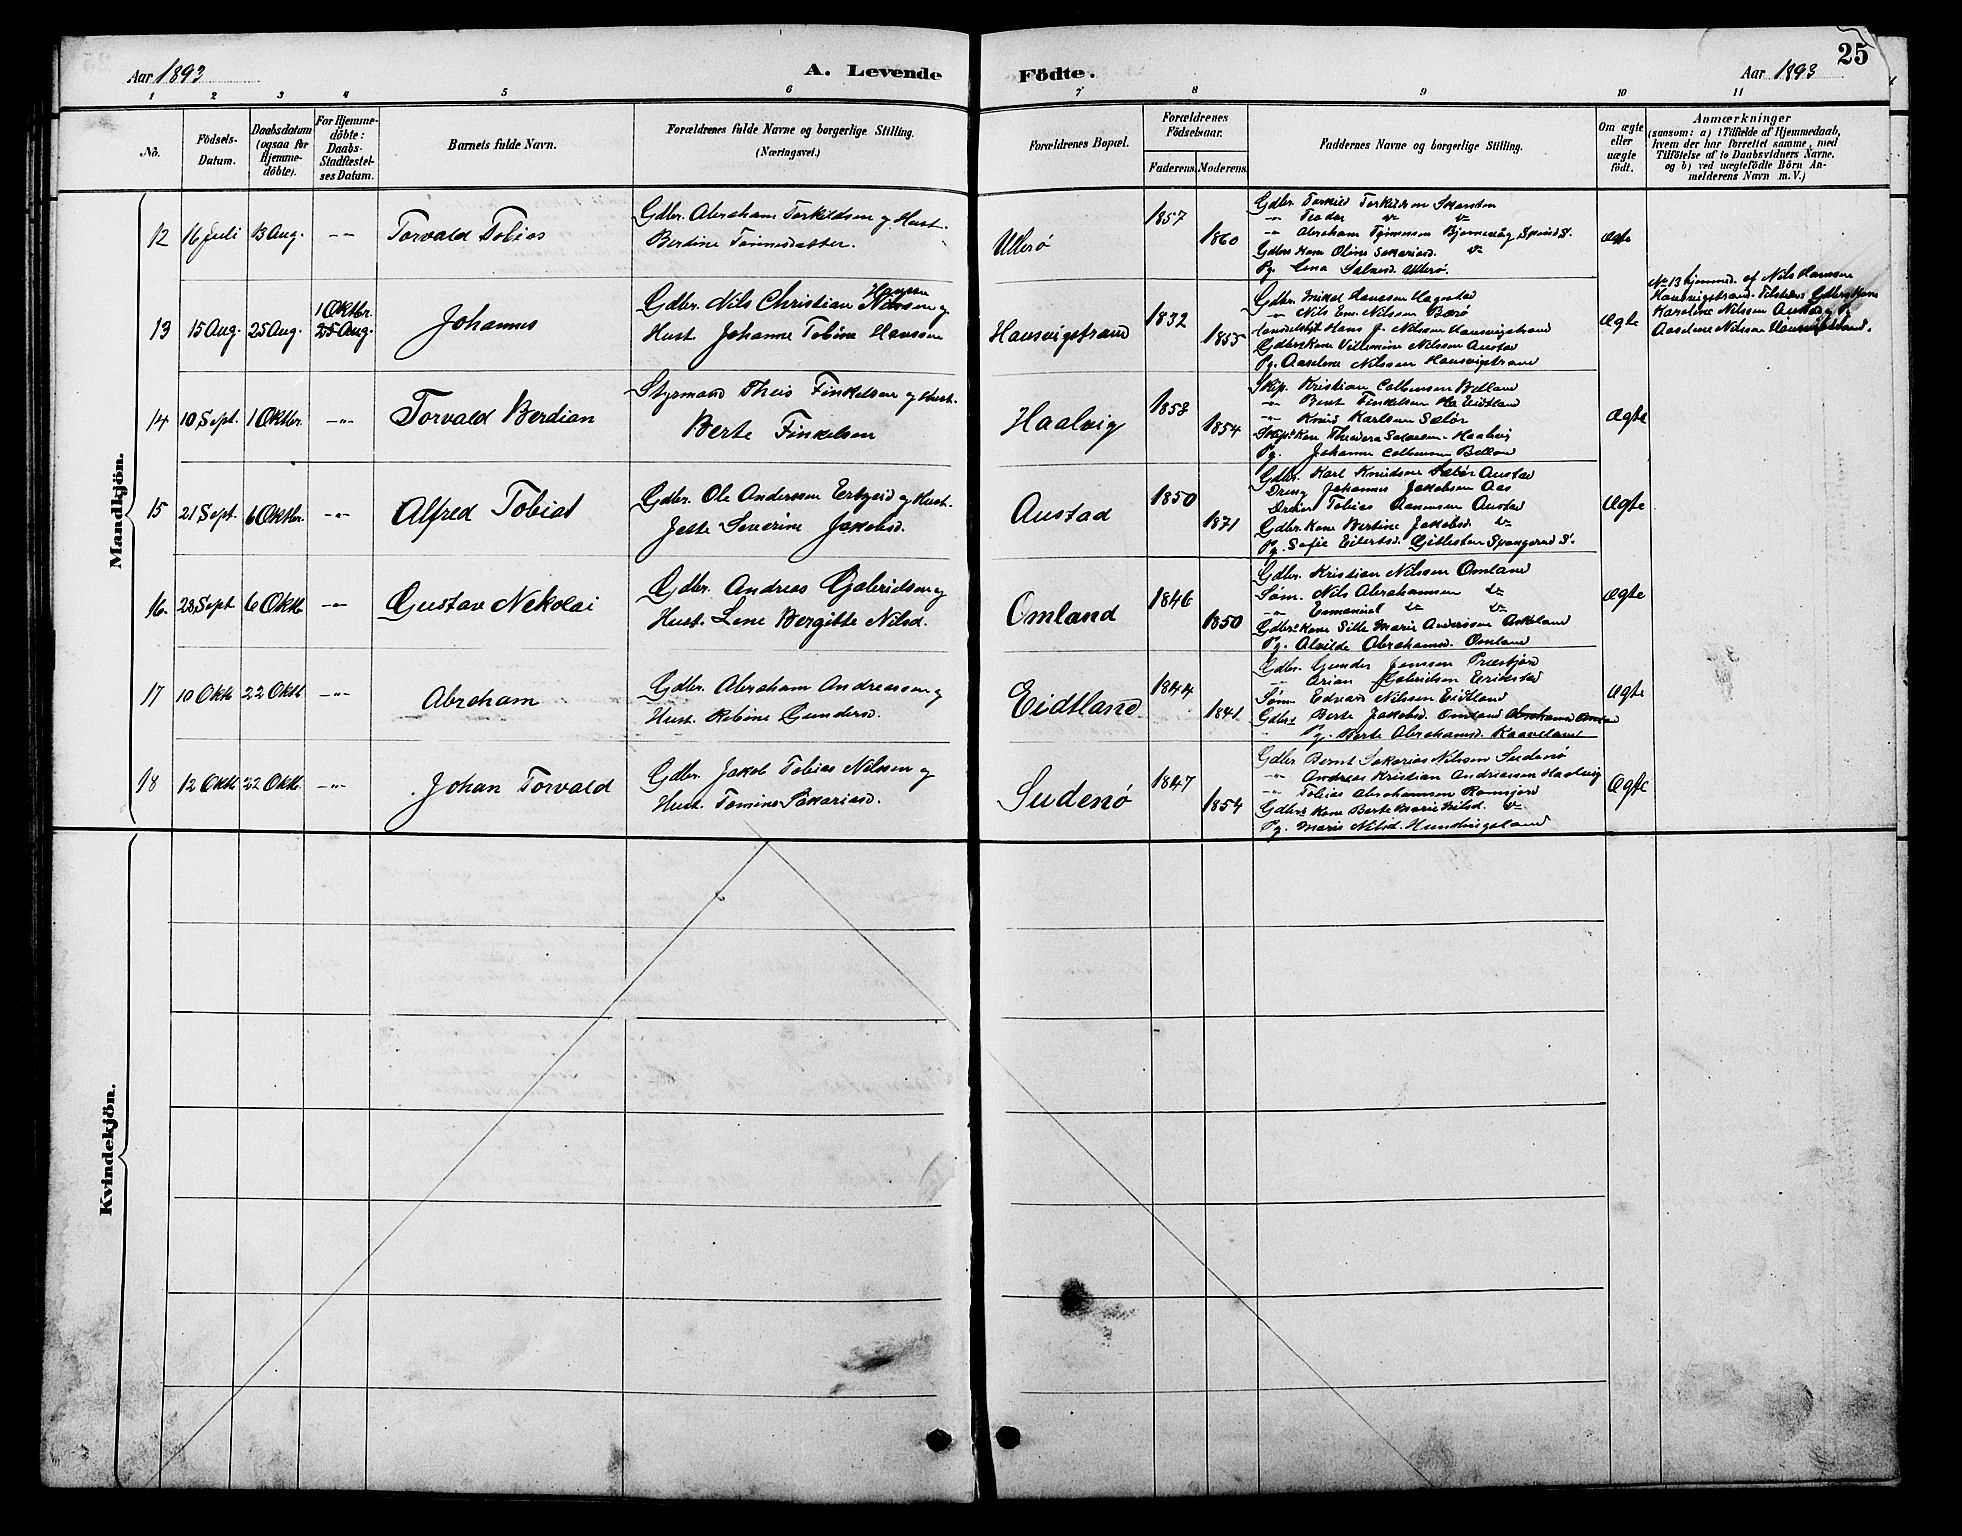 25
Aar 1893
A. Levende Födte.
Aar 1893
1 2 3 4 5 6 7 8 9 10 11
No.
Födsels-Datum.
Daabsdatum (ogsaa för Hjemme-döbte).
For Hjemme-döbte: Daabs-Stadfæstel-ses Datum.
Barnets fulde Navn.
Forældrenes fulde Navne og borgerlige Stilling.
(Næringsvei.)
Forældrenes Bopæl.
Forældrenes Födselsaar.
Faderens. Moderens.
Faddernes Navne og borgerlige Stilling.
Om ægte eller uægte födt.
Anmærkninger
(saasom: a) i Tilfælde af Hjemmedaab,
hvem der har forrettet samme, med
Tilföielse af to Daabsvidners Navne,
og b) ved uægtefödte Börn An-
melderens Navn m. V.)
Mandkjön.
12 16 Juli 13 Aug. -"- Torvald Tobias
Gdbr. Abraham Torkildsen og Hust.
Bertine Tønnesdatter.
Ullerø 1857 1860
Gdbr. Torkild Torkildsen Skarstен
-"- Teodor
-"- Abraham Tønnesen Bjørnevåg Spind S.
Gdbrs Kone Oline Sakariasd.
Pg. Lina Salvesd. Ullerø.
Ægte
13 15 Aug. 25 Aug. 1 Oktbr. 25 Aug. Johannes
Gdbr. Nils Christian Hansen Nilsen og
Hust. Johanne Tobine Hanssen
Hausvigstrand 1832 1855
Gdbr. Mikal Hanssen Hagestad
-"- Nils Em. Nilssen Bærø
Hans J. Nilssen Hausvigstrand
Gdbrs Kone Villemine Nilssen Austad
Pg. Aaselene Nilssen Hausvigstrand
Ægte
No 13 hjemmed. af Nils Hanssen
Hausvigstrand. Tilstede: Gdbrs Kone
Karoline Nilssen Austad Pg.
Aaselene Nilssen Hausvigstrand.
14 10 Sept. 1 Oktbr. -"- Torvald Berdian
Styrmand Theis Finkelsen og Hust.
Berte Finkelsen
Haalvig 1858 1854
Skip. Kristian Colbensen Belland
-"- Bent Finkelsen Eidtland
-"- Knud Karlsen Sæbør
Skips Kone Theodora Salvesen Haalvig
Pg. Johanne Colbensen Belland
Ægte
15 21 Sept. 6 Oktbr. -"- Alfred Tobias
Gdbr. Ole Anderssen Ertzeid og Hust.
Jette Severine Jakobsd.
Austad 1850 1871
Gdbr. Karl Knudsen Sæbør Austad
Dreng Johannes Jakobsen Aas
Tobias Aanensen Austad
Gdbr. Kone Bertine Jakobsd.
Pg. Sofie Eilertsd. Gitlesten Spangereid S.
Ægte
16 28 Sept 6 Oktb -"- Gustav Nekolai
Gdbr. Andreas Gabrielsen og
Hust. Lene Bergitte Nilsd.
Omland 1846 1850
Gdbr. Kristian Nilssen Omland
Søm. Nils Abrahamsen
-"- Emanuel
Gdbrs Kone Sille Marie Anderssen Askeland
Pg. Alvilde Abrahamsd. Omland
Ægte
17 10 Oktb 22 Oktb -"- Abraham
Gdbr. Abraham Andreassen og
Hust. Rebine Gundersd.
Eidtland 1844 1841
Gdbr. Gunder Jonssen Præstjord
-"- Arian Gabrielsen Eirikstad
Søm. Edvard Nilssen Eidtland
Gdbrs Berte Jakobsd. Omland
Pg. Berte Abrahamsd. Kaaveland
Ægte
18 12 Oktb 22 Oktb. -"- Johan Torvald
Gdbr. Jakob Tobias Nilssen og
Hust. Tomine Sakariasd.
Sudenø 1847 1854
Gdbr. Bernt Sakarias Nilssen Sudenø
-"- Andreas Kristian Andreassen Haalvig
-"- Tobias Abrahamsen Ramsjord
Gdbrs Kone Berte Marie Nilsd.
Pg. Marie Nilsd. Hundingsland
Ægte
Kvindekjön.